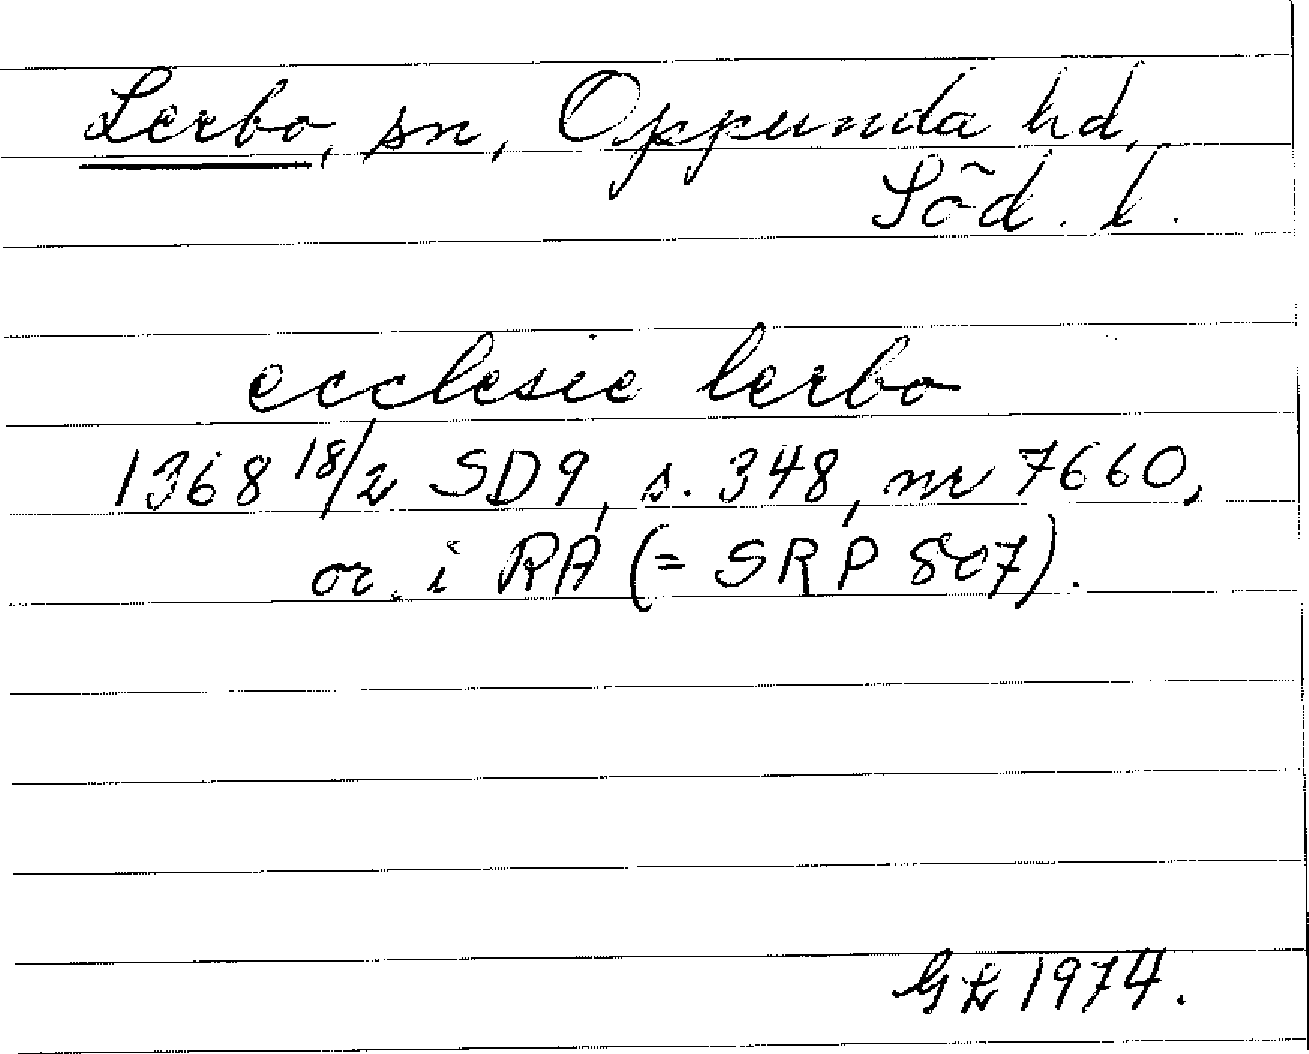 Lerbo, sn, Oppunda hd,
Söd. l.
ecclesie lerbo
1368 18/2 SD9, s. 348, nr 7660,
or. i RA (= SRP 807).
1974.